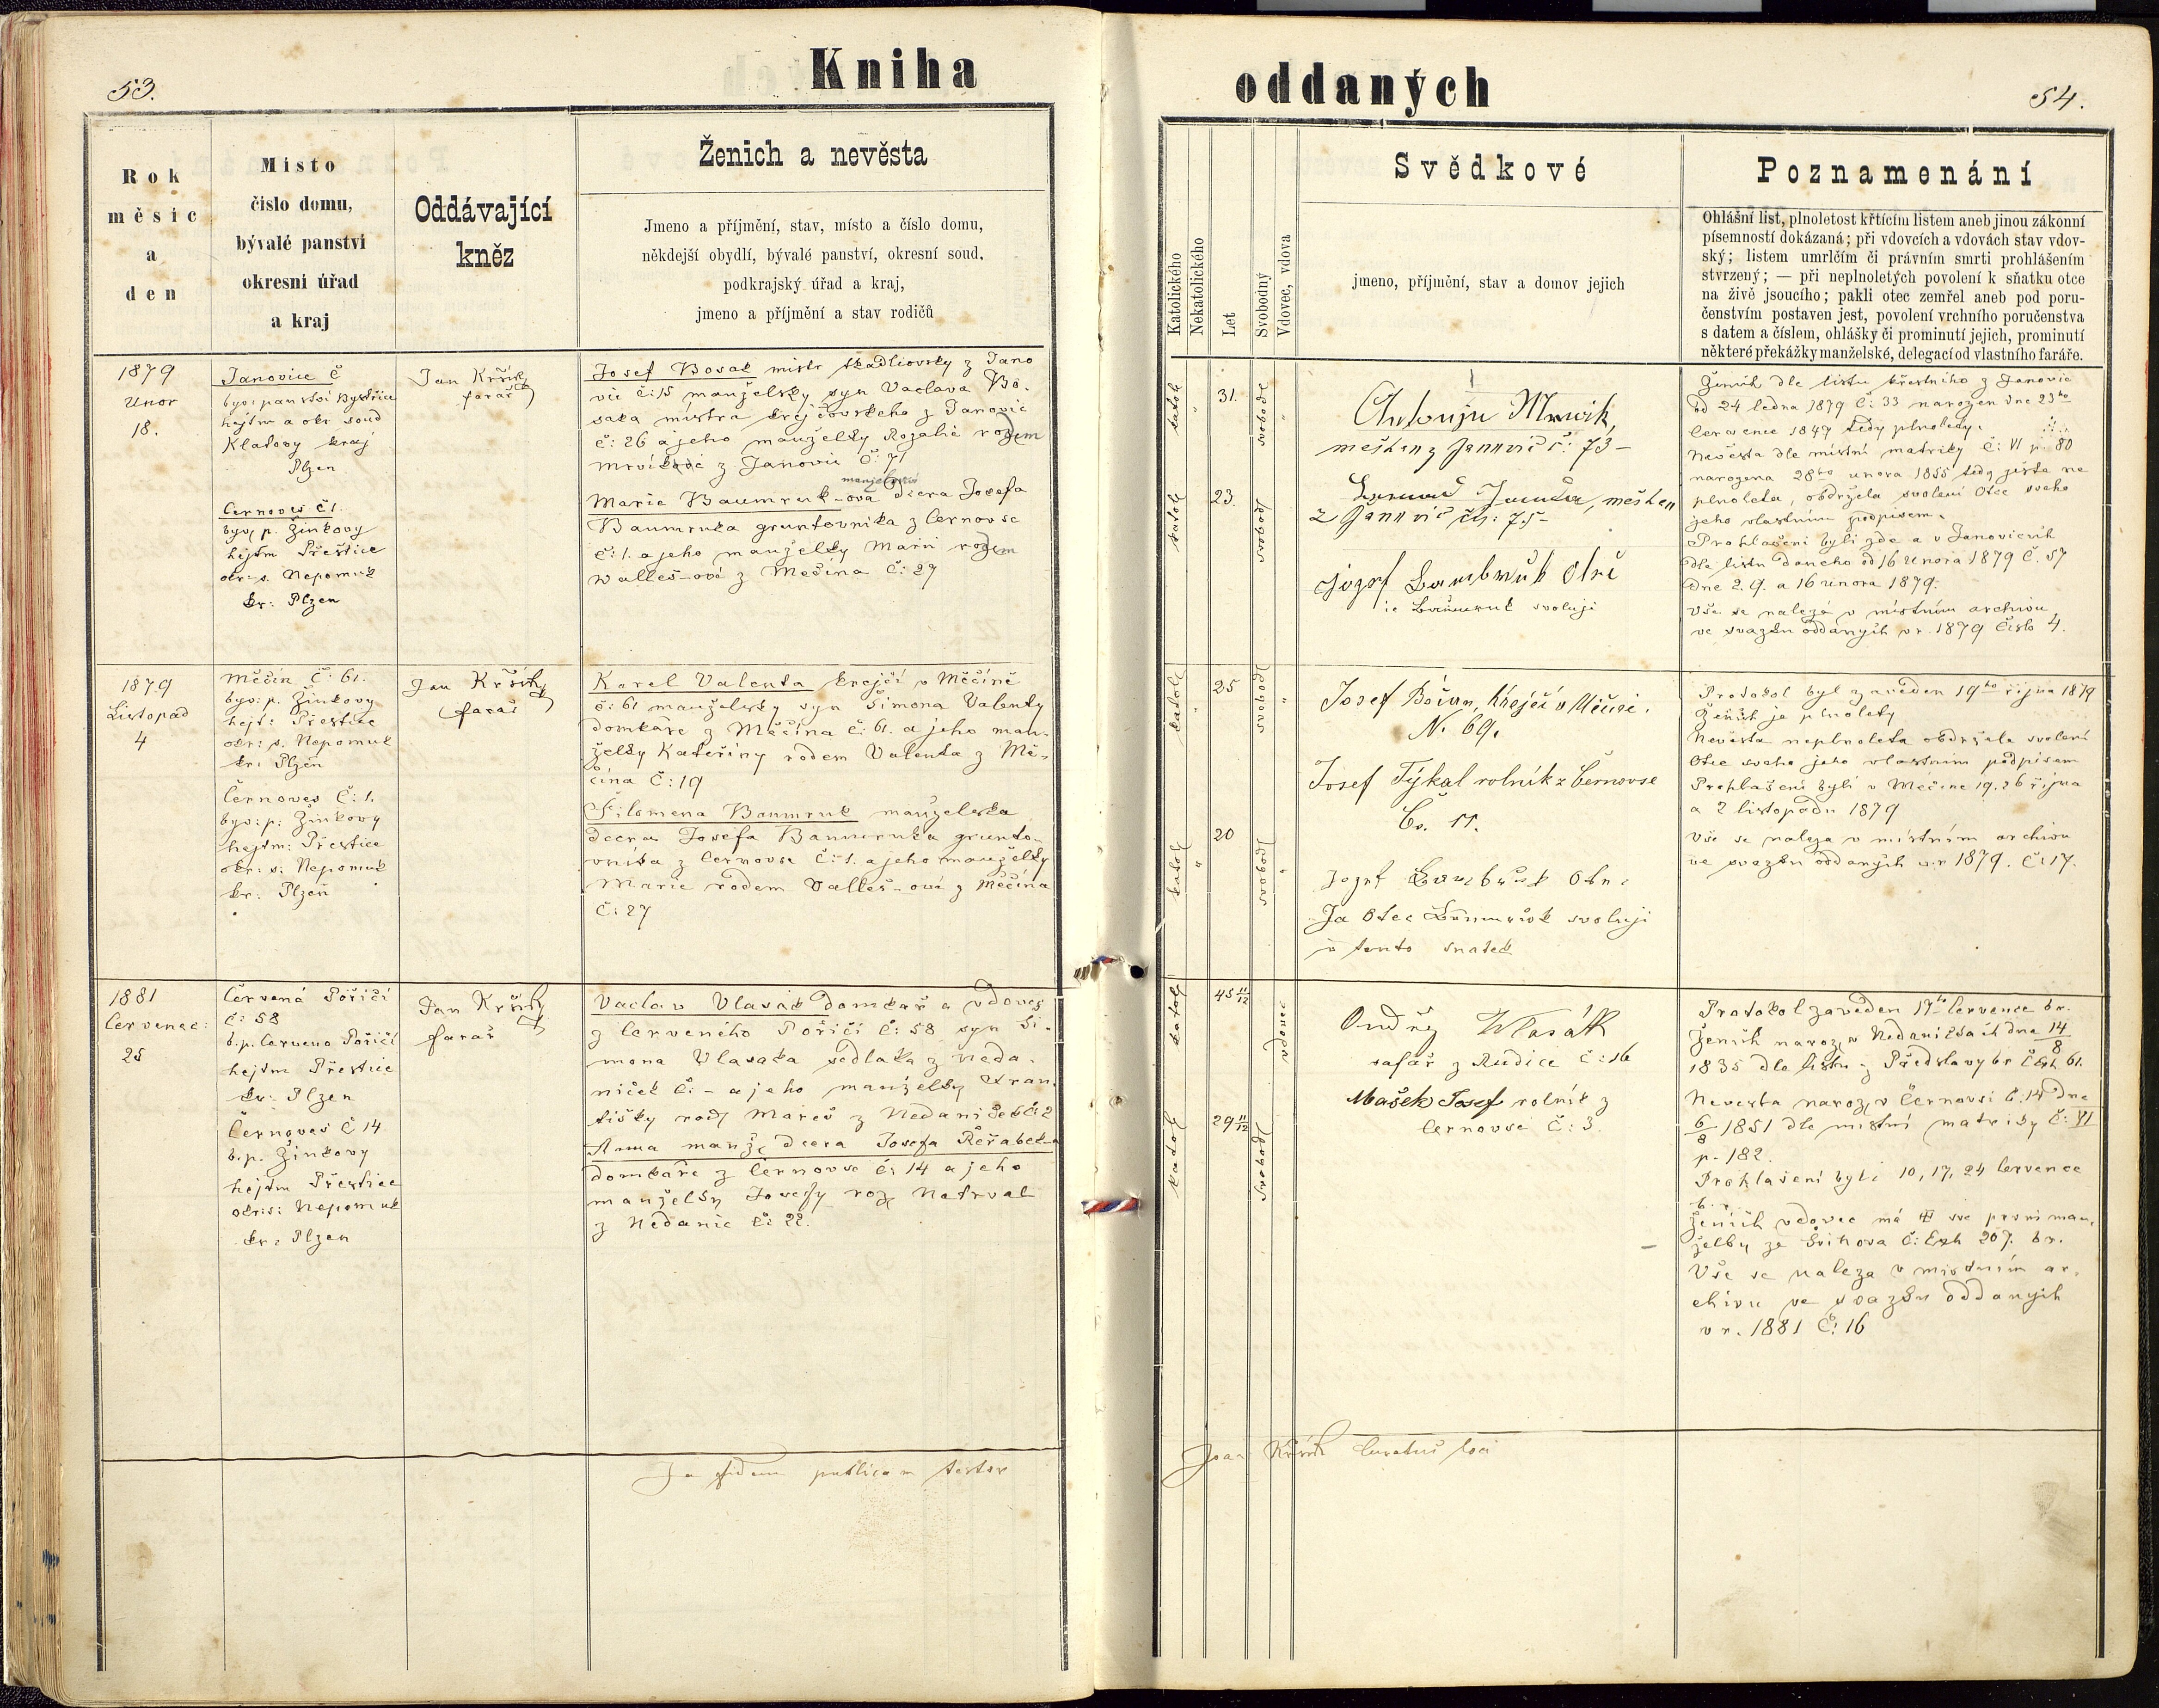 53.
Kniha
Rok
měsíc
a
den
Místo
číslo domu,
bývalé panství
okresní úřad
a kraj
Oddávající
kněz
Ženich a nevěsta
Jmeno a příjmění, stav, místo a číslo domu,
někdejší obydlí, bývalé panství, okresní soud,
podkrajský úřad a kraj,
jmeno a příjmění a stav rodičů
1879
Unor
18.
Janovice č
byv: panství Bystřice
hejtm a okr soud
Klatovy kraj
Plzen
Černoves č1.
byv, p. Žinkovy
hejtm Přeštice
okr: s. Nepomuk
kr: Plzen
Jan Kršík
farář
Josef Bosak mistr tkadlcovsky z Jano
vic č:15 manželsky syn Vaclava Bo-
saka mistra krejčovskeho z Janovic
č: 26 a jeho manželky Rozalie rozem
z Janovic č: 71
manželská
Marie Baumruk-ova dcera Josefa
Baumruka gruntovnika z Černovse
č: 1. a jeho manželky Marii rozem
Walleš-ové z Mečína č: 27
1879
Listopad
4
Měčín č: 61.
byv: p. Žinkovy
hejt: Přeštice
okr: s. Nepomuk
kr: Plzeň
Černoves č: 1.
byv: p: Žinkovy
hejtm: Přeštice
okr: s: Nepomuk
kr: Plzeň
Jan Kršík
farář
Karel Valenta krejčí v Měčíně
č: 61 manželsky syn Šimona Valenty
domkáře z Měčína č: 61. a jeho man-
želky Kateřiny rodem Valenta z Mě-
čína č: 19
Filomena Baumruk manželska
dcera Josefa Baumruka grunto-
vníka z Černovse č: 1. a jeho manželky
Marie rodem Valleš-ová z Měčína
č: 27
1881
Červenec:
25
Červená Poříčí
č: 58
b. p. Červeno Poříčí
hejtm Přeštice
kr: Plzen
Černoves č 14
b. p. Žinkovy
hejtm Přeštice
okr: s: Nepomuk
kr: Plzen
Jan Kršík
farář
Vaclav Vlasák domkář a vdovec
z Červeného Poříčí č: 58 syn Ši-
mona Vlasaka sedlaka z Neda-
niček č: - a jeho manželky Fran-
tišky roz Mareš z Nedaniček č: 2
Anna manž, dcera Josefa Řeřabek-a
domkáře z Černovse č: 14 a jeho
manželky Josefy roz, Natrval
z Nedanic č: 22.
In fidem publicam testor
oddaných
54.
Katolického
Nekatolického
Let
Svobodný
Vdovec, vdova
Svědkové
jmeno, příjmění, stav a domov jejich
Poznamenání
Ohlášní list, plnoletost křtícím listem aneb jinou zákonní
písemností dokázaná; při vdovcích a vdovách stav vdov-
ský; listem umrlčím či právním smrti prohlášením
stvrzený; — při neplnoletých povolení k sňatku otce
na živě jsoucího; pakli otec zemřel aneb pod poru-
čenstvím postaven jest, povolení vrchního poručenstva
s datem a číslem, ohlášky či prominutí jejich, prominutí
některé překážky manželské, delegací od vlastního faráře.
katol
31.
svobod
Antonín Mrvik,
meštan z Janovic č: 73-
katol
23.
svobod
meštan
z Janovic čis: 75-
Jozef Baumbruk Otec
svoluji
Ženich dle listu křestního z Janovic
od 24 ledna 1879 č: 33 narozen dne 23ho
července 1847 tedy plnolety.
Nevěsta dle místní matriky č: VI p 80
narozena 28ho unora 1855 tedy jesta ne
plnoleta, obdržela svolení Otce sveho
jeho vlastnim podpisem.
Prohlašeni byli zde a v Janovicích
dle listu daneho od 16 Unora 1879 č. 57
dne 2. 9. a 16 unora 1879.
Vše se nalezá v místním archivu
ve svazku oddaných v r. 1879 číslo 4.
katol
25
svobod
Josef Krejčí v Mečíně.
N. 69.
Josef Týkal rolník z Černovse
Čs. 11.
katol
20
svobod
Jozef Baumbruk Otec
Ja Otec Baumruk svoluji
v tento snatek
Protokol byl zaveden 19ho října 1879
Ženich je plnolety
Nevěsta neplnoleta obdržela svolení
Otce sveho jeho vlastnim podpisem
Prohlašeni byli v Mečíne 19. 26 října
a 2 listopadu 1879
Vše se naleza v místním archivu
ve svazku oddaných v r 1879. č: 17.
katol
45 11/12
vdovec
Ondřej Wlasák
šafář z Rudice č: 16
katol
29 11/12
svobod
Mašek Josef rolník z
Černovse č: 3.
Protokol zaveden 17ho července br.
Ženich naroz, v Nedaničkach dne 14/8
1835 dle listu z Předslavy br č Exh 61.
Nevesta naroz, v Černovsi č. 14 dne
6/8 1851 dle místní matriky č: VI
p. 182.
Prohlašeni byli 10, 17, 24 července
b. r.
Ženich vdovec má sve první man-
želky ze Švihova č: Exh 207. br.
Vše se naleza v místním ar-
chivu ve svazku oddaných
v r. 1881 č: 16
Joan Kršík Curatus loci